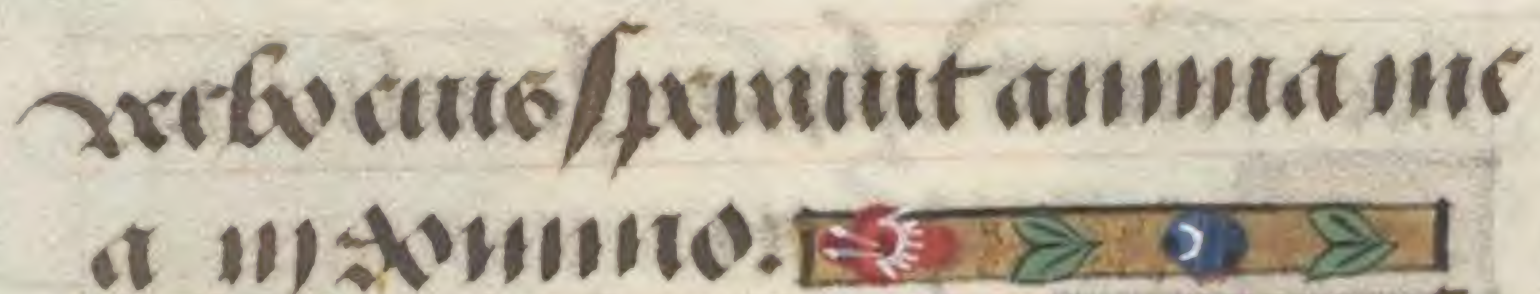 verbo eius sperauit anima me
a in domino.